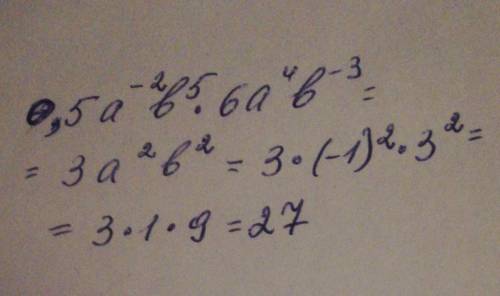 0,5a⁻²b⁵·6a⁴b⁻³=
= 3a²b² = 3·(-1)²·3²=
= 3·1·9=27